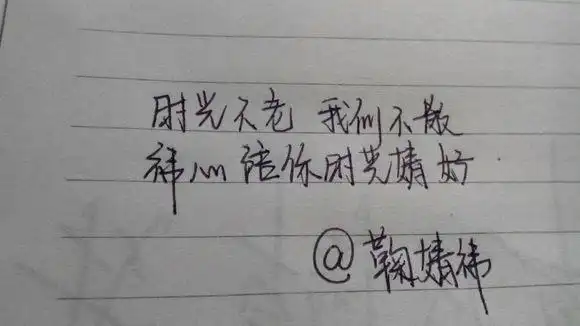 时光不老 我们不散
祎心陪你时光婧好
@鞠婧祎